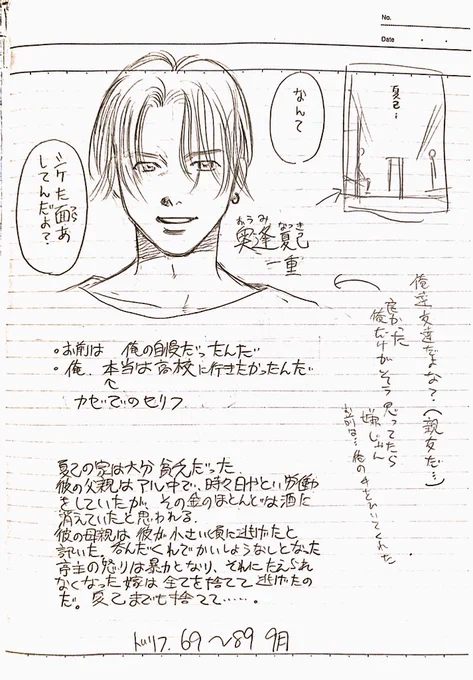 No.
Date
なんて
シケた面あ
してんだよ？
夏己…
おうみ なつき
奥逢 夏己
一重
俺達友達だよな？（親友だ…）
良かった
俺だけがそう思ってたら
嫌じゃん
お前は…俺の手をひいてくれた
・お前は 俺の自慢だったんだ
・俺、本当は高校に行きたかったんだ
カゼでのセリフ
夏己の家は大分貧乏だった。
彼の父親はアル中で、時々日やとい労働
をしていたが、その金のほとんどは酒に
消えていたと思われる。
彼の母親は彼が小さい頃に逃げたと
訊いた。呑んだくれでかいしょうなしとなった
亭主の怒りは暴力となり、それにたえられ
なくなった嫁は全てを捨てて逃げたの
だ。夏己までも捨てて……。
69〜89 9月